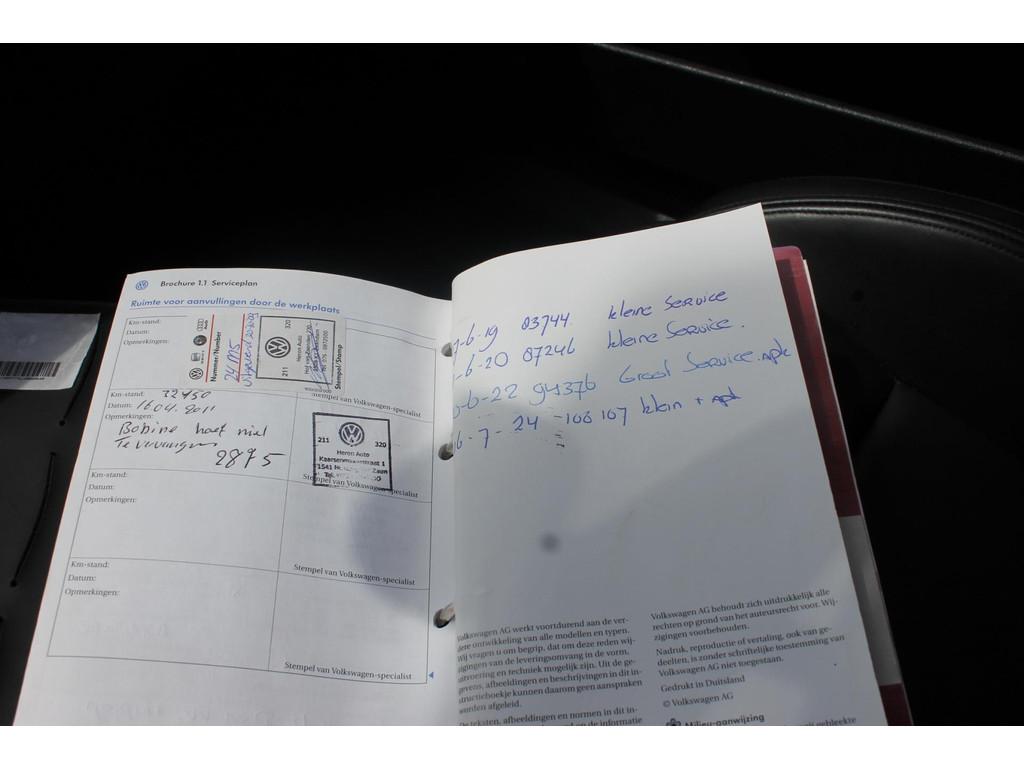 Brochure 1.1 Serviceplan
Ruimte voor aanvullingen door de werkplaats
Km-stand:
Datum:
Opmerkingen:
Nummer/Number
24 M5
320
211
Heron Auto
Stempel/Stamp
Stempel van Volkswagen-specialist
Km-stand: 32450
Datum: 16 04. 2011
Opmerkingen:
Bobine hoef niet
Te vervangen
2875
211 320
Heron Auto
1541
Stempel van Volkswagen-specialist
Km-stand:
Datum:
Opmerkingen:
Stempel van Volkswagen-specialist
Km-stand:
Datum:
Opmerkingen:
Stempel van Volkswagen-specialist
-6-19 83744 kleine Service
-6-20 87246 kleine Service.
-6-22 94376 Groot Service + apk
6-7-24 108107 klein + apk
Volkswagen AG werkt voortdurend aan de ver-
dere ontwikkeling van alle modellen en typen.
Wij vragen u om begrip, dat om deze reden wij-
zigingen van de leveringsomvang in de vorm,
uitvoering en techniek mogelijk zijn. Uit de ge-
gevens, afbeeldingen en beschrijvingen in dit in-
structieboekje kunnen daarom geen aanspraken
worden afgeleid.
De teksten, afbeeldingen en normen in dit in-
op de informatie
Volkswagen AG behoudt zich uitdrukkelijk alle
rechten op grond van het auteursrecht voor. Wij-
zigingen voorbehouden.
Nadruk, reproductie of vertaling, ook van ge-
deelten, is zonder schriftelijke toestemming van
Volkswagen AG niet toegestaan.
Gedrukt in Duitsland
© Volkswagen AG
Milieu-aanwijzing
gebleekte